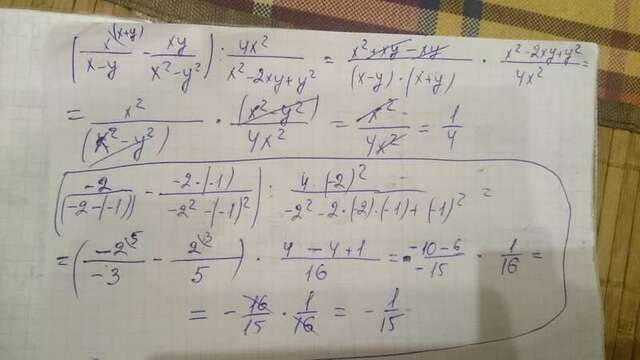 (x^(x+y)/(x-y) - xy/(x²-y²)) : 4x²/(x²-2xy+y²) = (x²+xy-xy)/((x-y)·(x+y)) · (x²-2xy+y²)/4x² =
= x²/(x²-y²) · (x²-y²)/4x² = x²/4x² = 1/4
(-2/(-2-(-1)) - -2·(-1)/(-2²-(-1)²)) : 4·(-2)²/(-2²-2·(-2)·(-1)+(-1)²) =
= (-2^(\5)/-3 - 2^(\3)/5) · (4-4+1)/16 = (-10-6)/-15 · 1/16 =
= -16/15 · 1/16 = -1/15